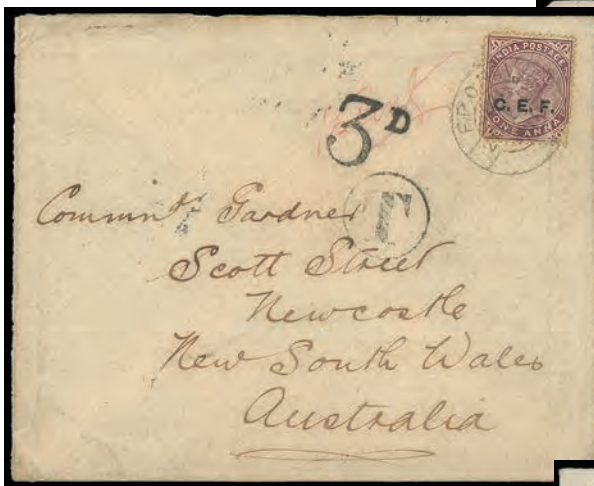 INDIA POSTAGE
C. E. F.
ONE ANNA
F.P.O.
3D
T
Commndr Gardner
Scott Street
Newcastle
New South Wales
Australia